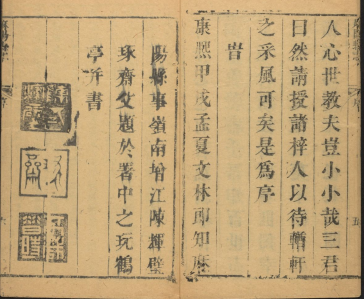 人心世教夫豈小小哉三君
曰然請授諸梓人以待輶軒
之采風可矣是為序
旹
康熙甲戌孟夏文林郎知麻
陽縣事嶺南增江陳輝璧
琢齋父題於署中之玩鶴
亭并書